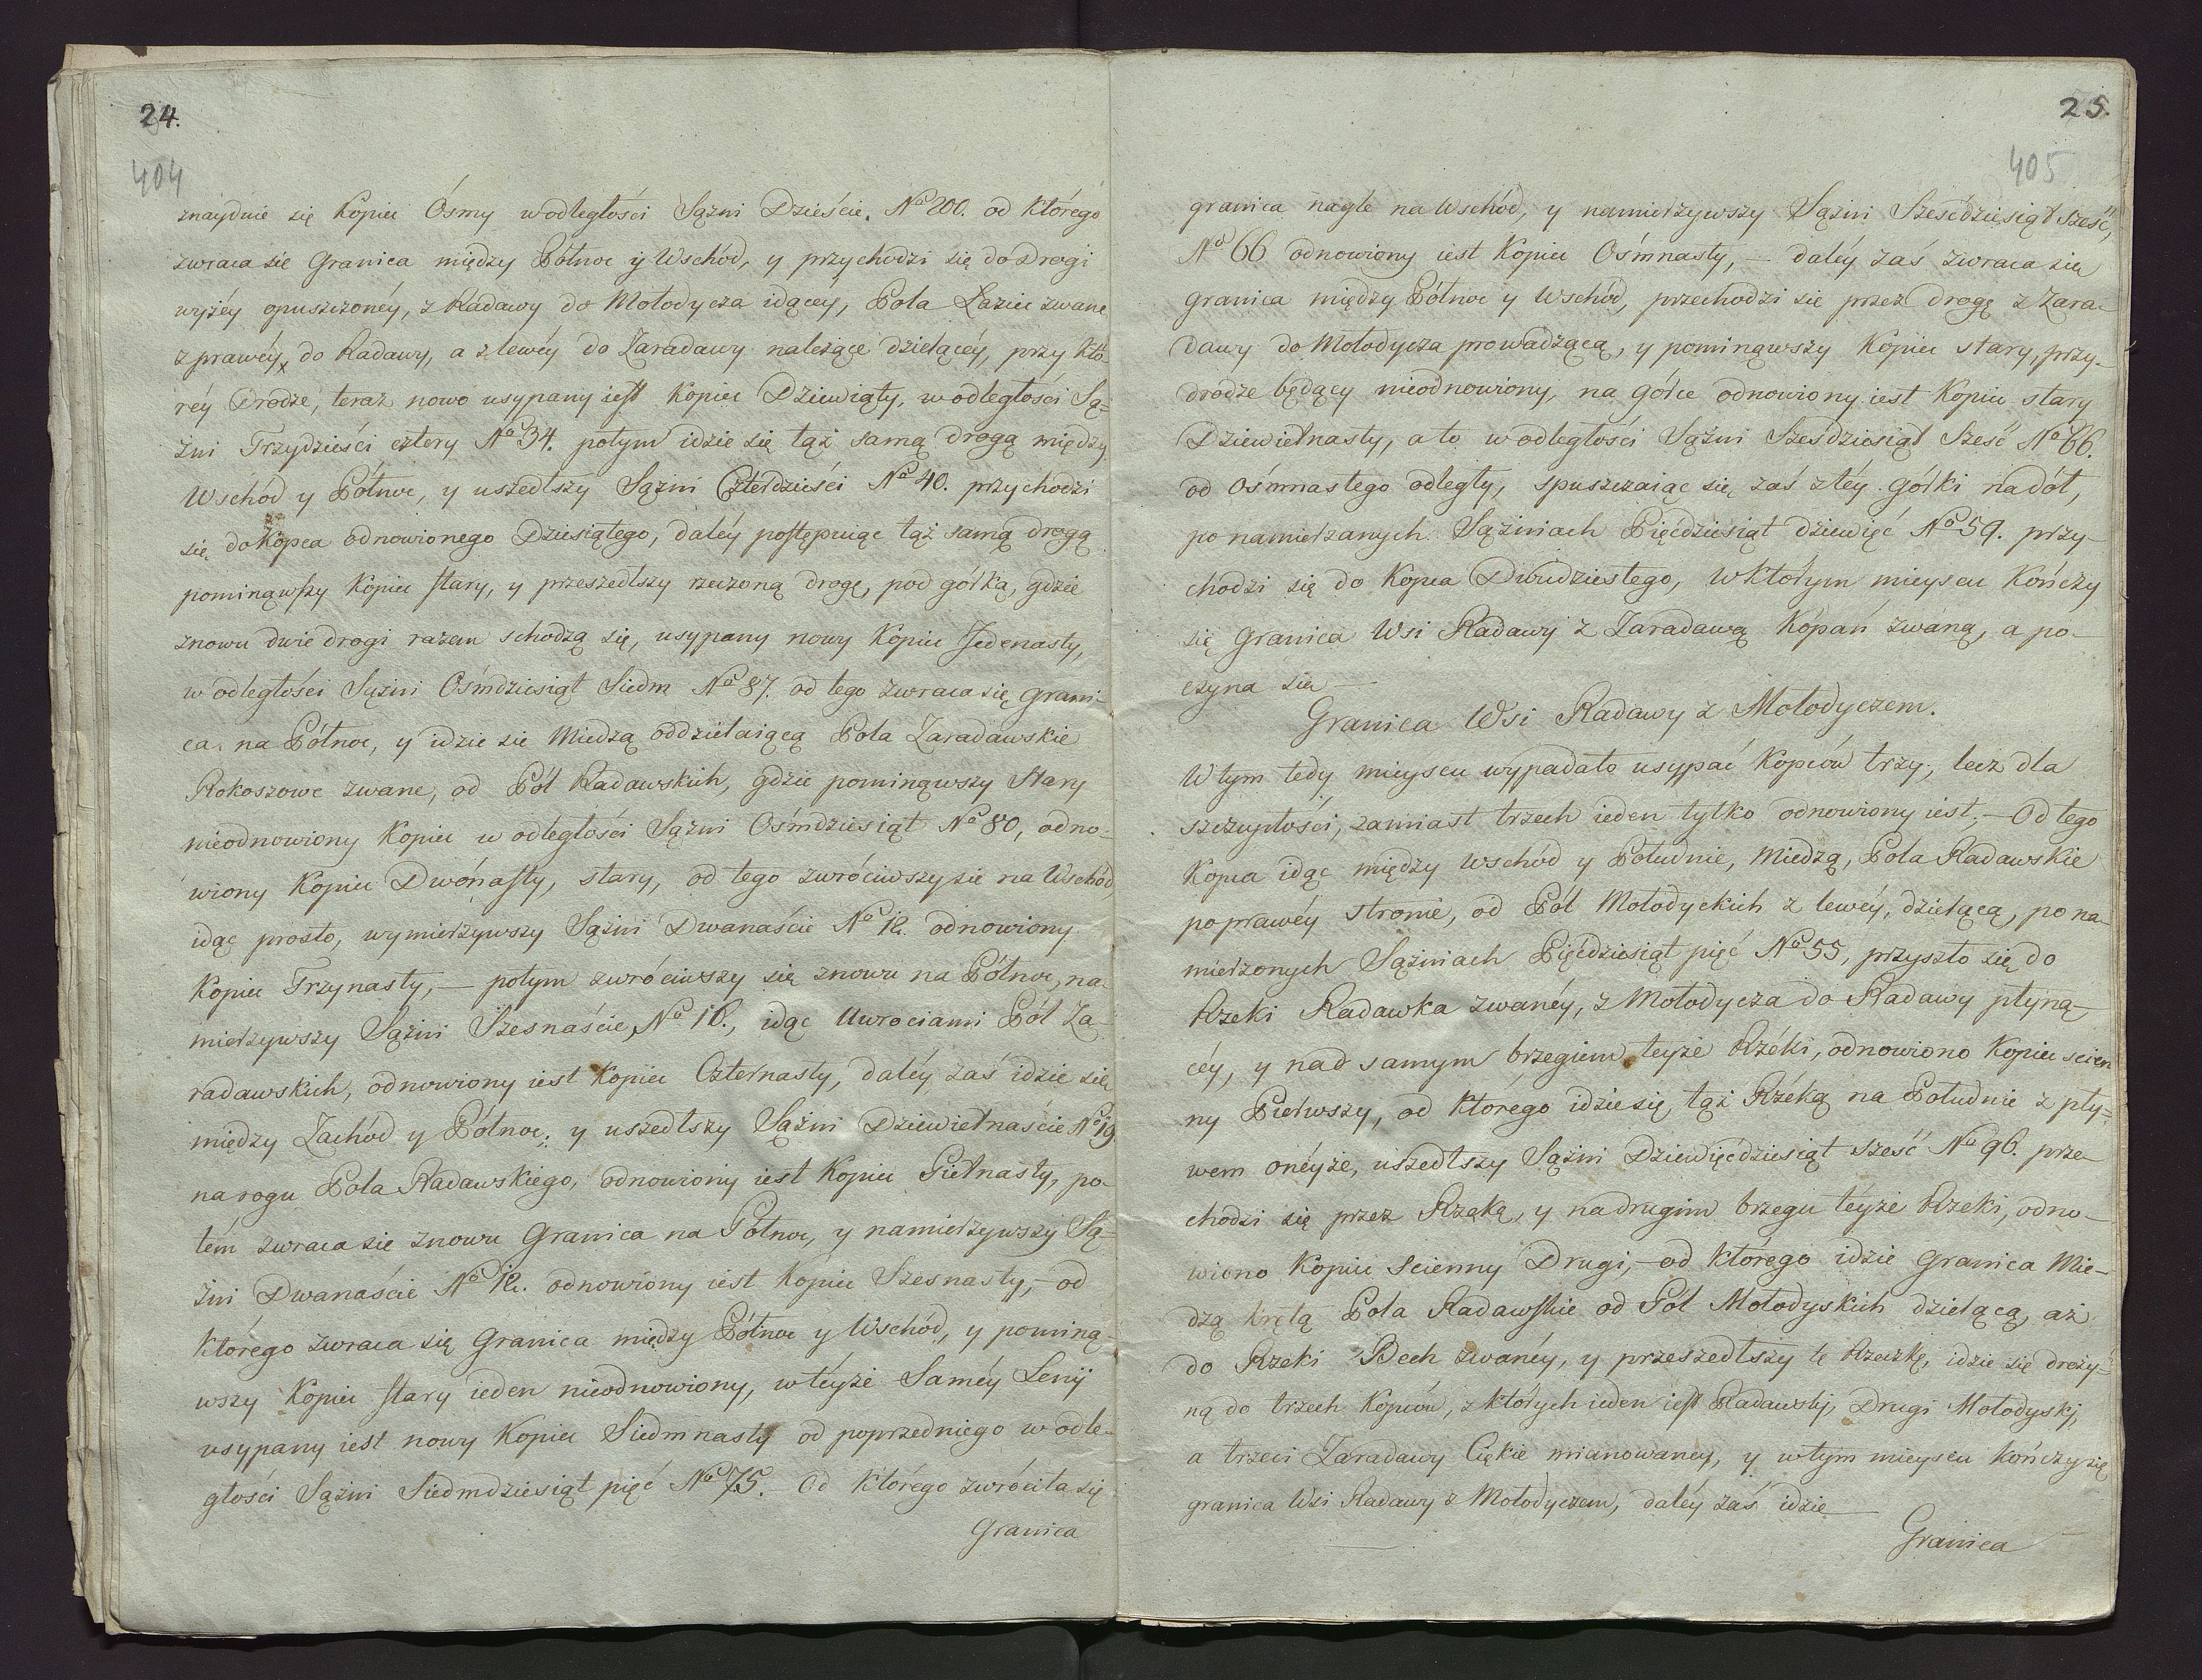 24.
404
znayduie się Kopiec Ósmy w odległości Sążni Dzieście. No 200. od którego
zwraca się Granica między Północ y Wschód, y przychodzi się do Drogi
wyżéy opuszczonéy, z Radawy do Mołodycza idącéy, Pola Łaziec zwane
z prawéy, do Radawy, a z lewéy do Zaradawy należące dzielącéy, przy któ-
réy Drodze, teraz nowo usypany iest Kopiec Dziewiąty, w odległości Są-
żni Trzydzieści cztery No 34. potym idzie się tąż samą drogą między
Wschód y Północ, y uszedłszy Sążni Czterdzieści No 40. przychodzi
się do Kopca odnowionego Dziesiątego, daléy postępuiąc tąż samą drogą
pominąwszy Kopiec stary, y przeszedłszy rzeczoną drogę, pod górką, gdzie
znowu dwie drogi razem schodzą się, usypany nowy Kopiec Jedenasty,
w odległości Sążni Ośmdziesiąt Siedm No 87. od tego zwraca się grani-
ca na Północ, y idzie się Miedzą oddzielaiącą Pola Zaradawskie
Rokoszowe zwane, od Pól Radawskich, gdzie pominąwszy Stary
nieodnowiony Kopiec w odległości Sążni Ośmdziesiąt No 80, odno-
wiony Kopiec Dwónasty, stary, od tego zwróciwszy się na Wschód,
idąc prosto, wymierzywszy Sążni Dwanaście No 12. odnowiony
Kopiec Trzynasty, — potym zwróciwszy się znowu na Północ, na-
mierzywszy Sążni Szesnaście, No 16., idąc Uwrociami Pól Za-
radawskich, odnowiony iest Kopiec Czternasty, daléy zaś idzie się
między Zachód y Północ; y uszedłszy Sążni Dziewiętnaście No 19
na rogu Pola Radawskiego, odnowiony iest Kopiec Piętnasty, po-
tém zwraca się znowu Granica na Północ, y namierzywszy Są-
żni Dwanaście No 12. odnowiony iest Kopiec Szesnasty, — od
którego zwraca się Granica między Północ y Wschód, y pominą-
wszy Kopiec stary ieden nieodnowiony, w téyże Saméy Lenij
usypany iest nowy Kopiec Siedmnasty od poprzedniego w odle-
głości Sążni Siedmdziesiąt pięć No 75. Od którego zwróciła się
Granica
25.
405
granica nagle na Wschód, y namierzywszy Sążni Sześćdziesiąt sześć,
No 66 odnowiony iest Kopiec Ośmnasty, — daléy zaś zwraca się
granica między Północ y Wschód, przechodzi się przez drogę z Zara-
dawy do Mołodycza prowadzącą, y pominąwszy Kopiec stary, przy-
drodze będący nieodnowiony, na górce odnowiony iest Kopiec stary
Dziewiętnasty, a to w odległości Sążni Sześdziesiąt Sześć No 66.
od ośmnastego odległy, spuszczaiąc się zaś z téy górki na dół,
po namierzanych Sążniach Pięćdziesiąt dziewięć No 59. przy-
chodzi się do Kopca Dwudziestego, w którym mieyscu Kończy
się Granica Wsi Radawy z Zaradawą Kopań zwaną, a po-
czyna się —
Granica Wsi Radawy z Mołodyczem.
W tym tedy mieyscu wypadało usypać Kopców trzy, lecz dla
szczupłości, zamiast trzech ieden tylko odnowiony iest; — Od tego
Kopca idąc między Wschód y Południe, Miedzą, Pola Radawskie
po prawéy stronie, od Pól Mołodyckich z lewéy, dzielącą, po na-
mierzonych Sążniach Pięćdziesiąt pięć No 55, przyszło się do
Rzeki Radawka zwanéy, z Mołodycza do Radawy płyną-
céy, y nad samym brzegiem teyże Rzéki, odnowiono Kopiec scien
ny Pierwszy, od którego idzie się tąż Rzéką na Południe z pły-
wem onéyże, uszedłszy Sążni Dziewięćdziesiąt sześć No 96. prze-
chodzi się przez Rzekę, y na drugim brzegu téyże Rzeki, odno-
wiono Kopiec Scienny Drugi, — od którego idzie Granica Mie-
dzą krętą Pola Radawskie od Pól Mołodyskich dzielącą, aż
do Rzeki Bech zwanéy, y przeszedłszy tę Rzeczkę, idzie się droży-
ną do trzech Kopców, z których ieden iest Radawskj, Drugi Mołodyskj,
a trzeci Zaradawy Ciękie mianowanéy, y w tym mieyscu kończy się
granica Wsi Radawy z Mołodyczem, daléy zaś idzie —
Granica